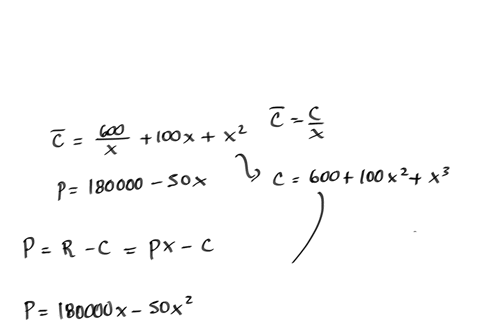 C̅ = 600/x + 100x + x²
C̅ = C/x
p = 180000 - 50x
C = 600 + 100x² + x³
P = R - C = Px - C
P = 180000x - 50x²